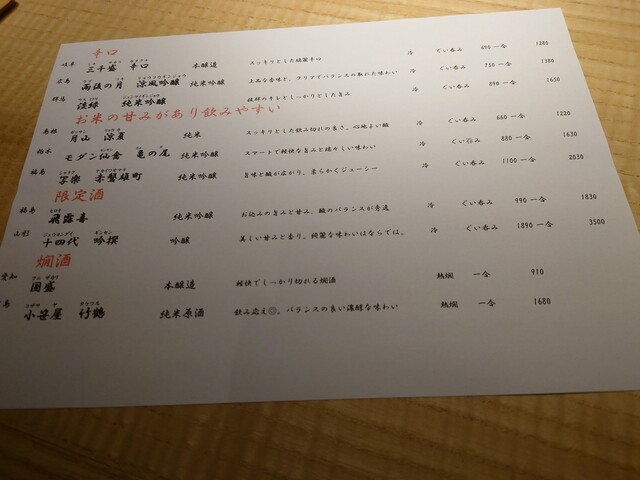 辛口
岐阜 三千盛 辛口 本醸造 スッキリとした端麗辛口 冷 ぐい呑み 690 一合 1280
広島 雨後の月 涼風吟醸 純米吟醸 上品な香味と、クリアでバランスの取れた味わい 冷 ぐい呑み 750 一合 1380
群馬 淡緑 純米吟醸 抜群のキレとしっかりとした旨み 冷 ぐい呑み 890 一合 1650
お米の甘みがあり飲みやすい
島根 月山 涼夏 純米 スッキリとした飲み切れの良さ、心地よい酸 冷 ぐい呑み 660 一合 1220
栃木 モダン仙禽 亀の尾 純米吟醸 スマートで軽快な旨みと瑞々しい味わい 冷 ぐい呑み 880 一合 1630
福島 写楽 赤磐雄町 純米吟醸 旨味と酸が広がり、柔らかくジューシー 冷 ぐい呑み 1100 一合 2030
限定酒
福島 飛露喜 純米吟醸 お込みの旨みと甘み、酸のバランスが秀逸 冷 ぐい呑み 990 一合 1830
山形 十四代 吟撰 吟醸 美しい甘みと香り、綺麗な味わいはならでは。 冷 ぐい呑み 1890 一合 3500
燗酒
愛知 國盛 本醸造 軽快でしっかり切れる燗酒 熱燗 一合 910
島 小笹屋 竹鶴 純米原酒 飲み応え◎、バランスの良い濃醇な味わい 熱燗 一合 1680